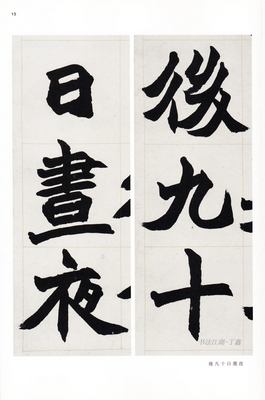 13
後九十
日晝夜
书法江湖·丁鑫
後九十日晝夜